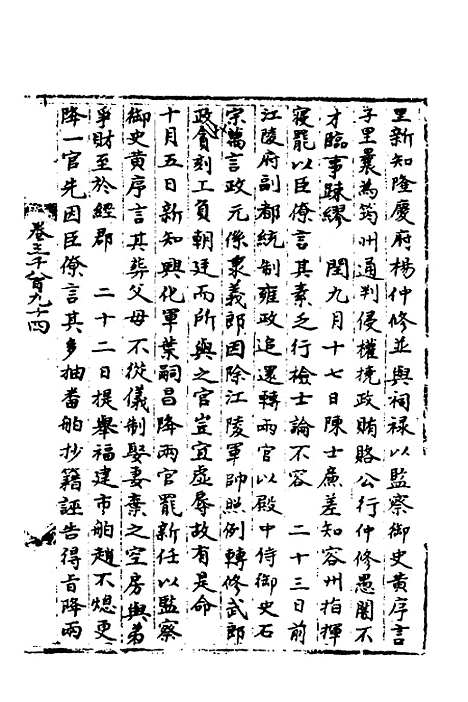 里新知隆慶府楊仲修並與祠祿以監察御史黄序言
子里曩為筠州通判侵權撓政賄賂公行仲修愚闇不
才臨事踈繆　閏九月十七日陳士廣差知容州指揮
寝罷以臣僚言其素乏行檢士論不容　二十三日前
江陵府副都統制雍政追還轉兩官以殿中侍御史石
宗萬言政元係秉義郎因除江陵軍帥照例轉修武郎
政貪刻工負朝廷而所與之官豈宜虚辱故有是命
十月五日新知興化軍葉嗣昌降兩官罷新任以監察
御史黄序言其葬父母不從儀制娶妻棄之空房與弟
爭財至於經郡　二十二日提舉福建市舶趙不熄更
降一官先因臣僚言其多抽畨舶抄籍誣告得旨降兩
卷三千八百九十四